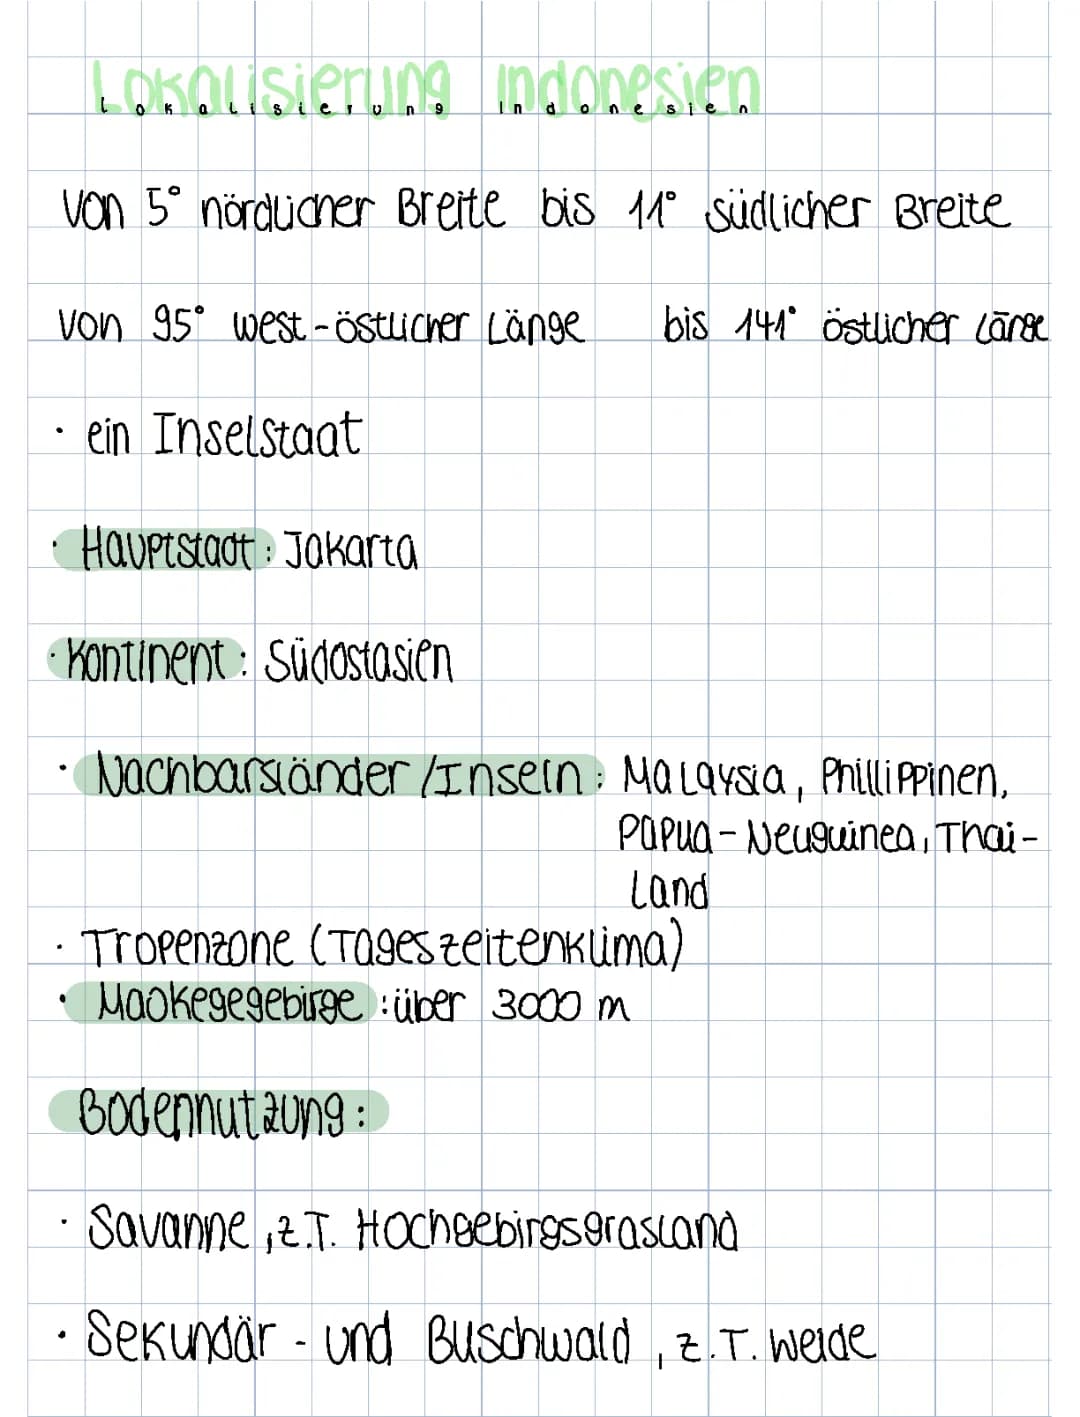 Lokalisierung Indonesien
Lokalisierung Indonesien
von 5° nördlicher Breite bis 11° südlicher Breite
von 95° west-östlicher Länge bis 141° östlicher Länge
· ein Inselstaat
· Hauptstadt: Jakarta
· Kontinent: Südostasien
· Nachbarsländer/Inseln: Malaysia, Phillippinen,
Papua-Neuguinea, Thai-
Land
· Tropenzone (Tageszeitenklima)
· Maokegegebirge: über 3000 m
Bodennutzung:
· Savanne, z.T. Hochgebirgsgrasland
· Sekundär- und Buschwald, z.T. Weide